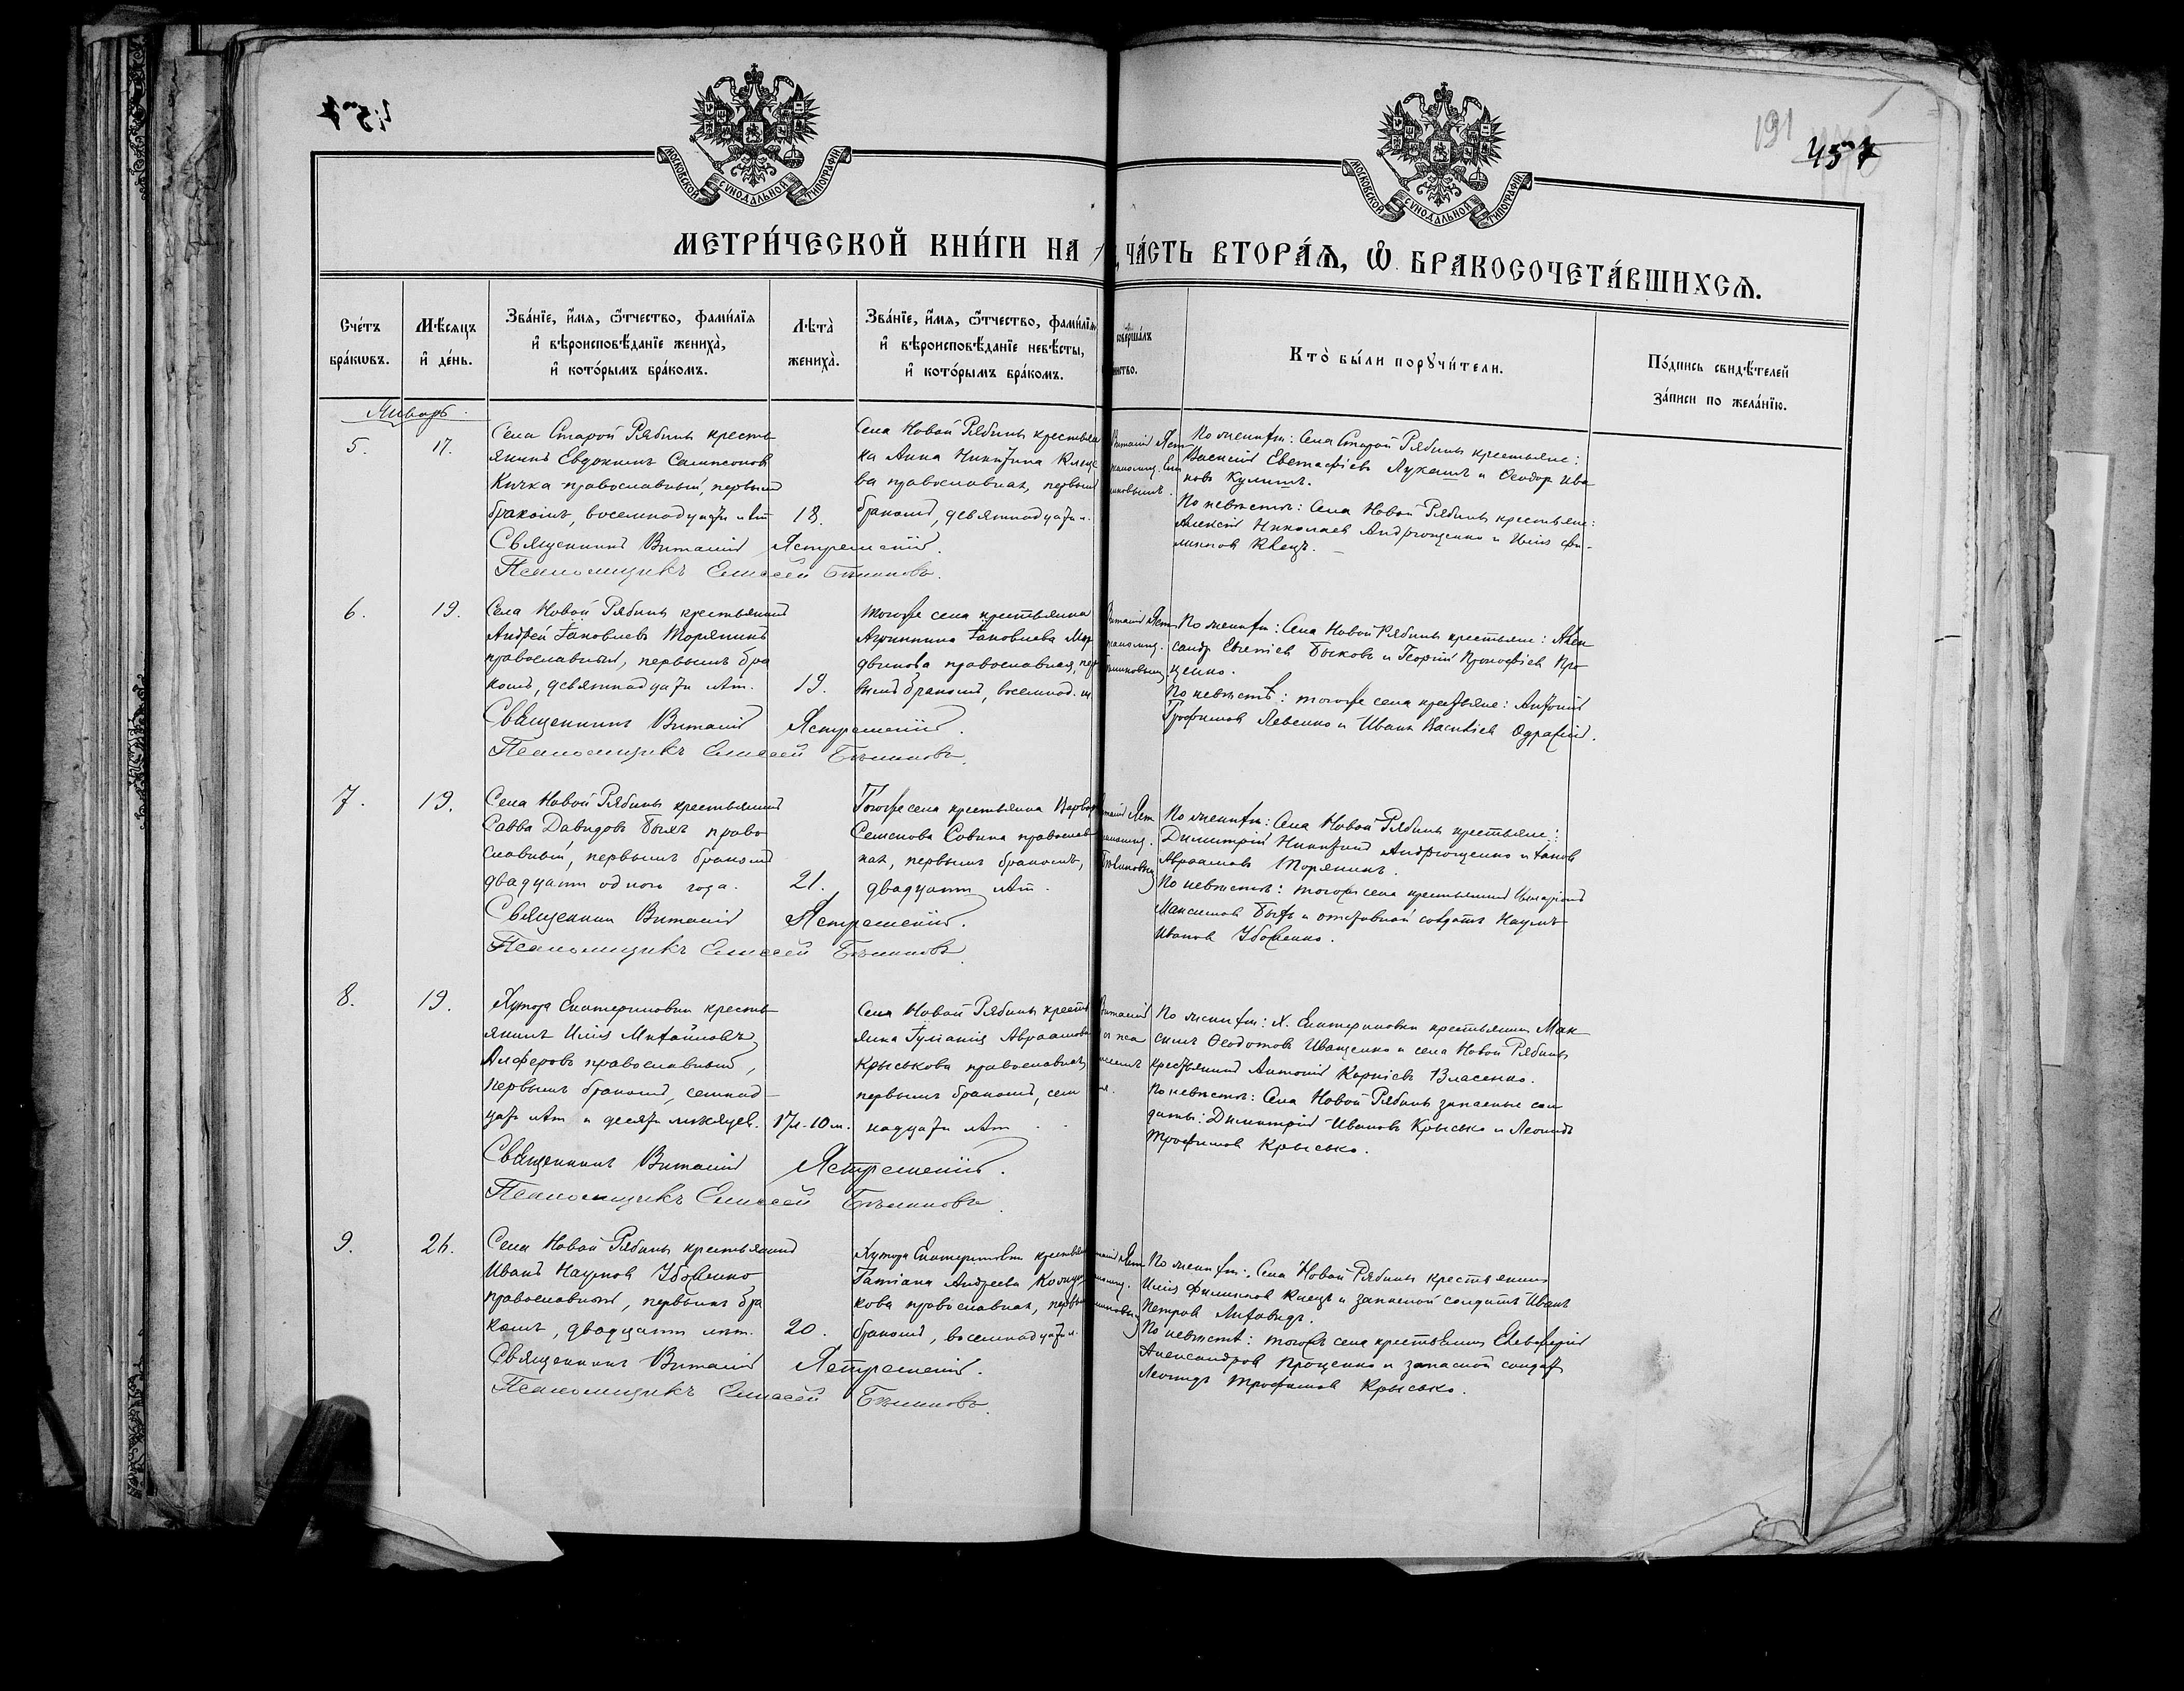 457
191
457
МОСКОВСКОЙ СѴНОДАЛЬНОЙ ТИПОГРАФІИ
МОСКОВСКОЙ СѴНОДАЛЬНОЙ ТИПОГРАФІИ
МЕТРИ́ЧЕСКОЙ КНИ́ГИ НА
ЧА́СТЬ ВТОРА́Ѧ, Ѽ БРАКОСОЧЕТА́ВШИХСѦ.
Сче́тъ бра́кѡвъ.
Мѣ́сяцъ и҆ де́нь.
Зва́нїе, и҆́мя, ѻ҆́тчество, фами́лїя
и҆ вѣроисповѣ́данїе жениха̀,
и҆ кото́рымъ бра́комъ.
Лѣта̀ жениха̀.
Зва́нїе, и҆́мя, ѻ҆́тчество, фами́лїя
и҆ вѣроисповѣ́данїе невѣ́сты,
и҆ кото́рымъ бра́комъ.
соверша́лъ
Кто̀ бы́ли порꙋчи́тели.
По́дпись свидѣ́телей
за́писи по жела́нїю.
Январь
5. 17.
Села Старой Рябины кресть
янинъ Евдокимъ Сампсоновъ
Кичка православный, первымъ
бракомъ, восемнадцати лѣт
18.
Села Новой Рябины крестьян
ка Анна Никитина Клец
ва православная, первымъ
бракомъ, девятнадцати л.
По женихѣ: Села Старой Рябины крестьяне:
Василій Евстафіевъ Лукашъ и Ѳеодоръ Ива
новъ Кулишъ.
По невѣстѣ: Села Новой Рябины крестьяне:
Алексій Николаевъ Андрющенко и Илія Фи-
липповъ Клецъ.
Священникъ Виталій Ястремскій.
Псаломщикъ Елисей Бѣликовъ.
6. 19.
Села Новой Рябины крестьянинъ
Андрей Іаковлевъ Торянинъ
православный, первымъ бра
комъ, девятнадцати лѣт.
19.
Тогоже села крестьянка
Агриппина Іаковлева Мор
двинова православная, пер
вымъ бракомъ, восемнад.
По женихѣ: Села Новой Рябины крестьяне: Алек
сандръ Евгеніевъ Быковъ и Георгій Прокофіевъ Про
ценко.
По невѣстѣ: тогоже села крестьяне: Антоній
Трофимовъ Левенко и Иванъ Васильевъ
Священникъ Виталій Ястремскій.
Псаломщикъ Елисей Бѣликовъ.
7. 19.
Села Новой Рябины крестьянинъ
Савва Давидовъ Быкъ право
славный, первымъ бракомъ
двадцати одного года.
21.
Тогоже села крестьянка Варвар
Семенова Совина православ
ная, первымъ бракомъ,
двадцати лѣт.
По женихѣ: Села Новой Рябины крестьяне:
Димитрій Никитинъ Андрющенко и Іаковъ
Авраамовъ Торянинъ.
По невѣстѣ: тогоже села крестьянинъ Иларіонъ
Максимовъ Быкъ и отставной солдатъ Наумъ
Ивановъ Убовенко.
Священникъ Виталій Ястремскій.
Псаломщикъ Елисей Бѣликовъ.
8. 19.
Хутора Екатериновки кресть
янинъ Илія Михайловъ
Алферовъ православный,
первымъ бракомъ, семнад
цати лѣт и десяти мѣсяцев.
17л-10м.
Села Новой Рябины кресть
янка Іуліанія Авраамова
Крыськова православная,
первымъ бракомъ, сем
надцати лѣт
По женихѣ: Х. Екатериновки крестьянинъ Мак
симъ Ѳеодотовъ Иващенко и села Новой Рябины
крестьянинъ Антоній Корніевъ Власенко.
По невѣстѣ: Села Новой Рябины запасные сол
даты: Димитрій Ивановъ Крысько и Леонидъ
Трофимовъ Крысько.
Священникъ Виталій Ястремскій.
Псаломщикъ Елисей Бѣликовъ.
9. 26.
Села Новой Рябины крестьянинъ
Иванъ Наумовъ Убовенко
православный, первымъ бра
комъ, двадцати лѣт.
20.
Хутора Екатериновки крестьян
Татіана Андреева
кова православная, первым
бракомъ, восемнадцати л.
По женихѣ: Села Новой Рябины крестьянинъ
Илія Филипповъ Клецъ и запасной солдатъ Иванъ
Петровъ
По невѣстѣ: тогожъ села крестьянинъ Елевферій
Александровъ Проценко и запасной солдат
Леонидъ Трофимовъ Крысько.
Священникъ Виталій Ястремскій.
Псаломщикъ Елисей Бѣликовъ.